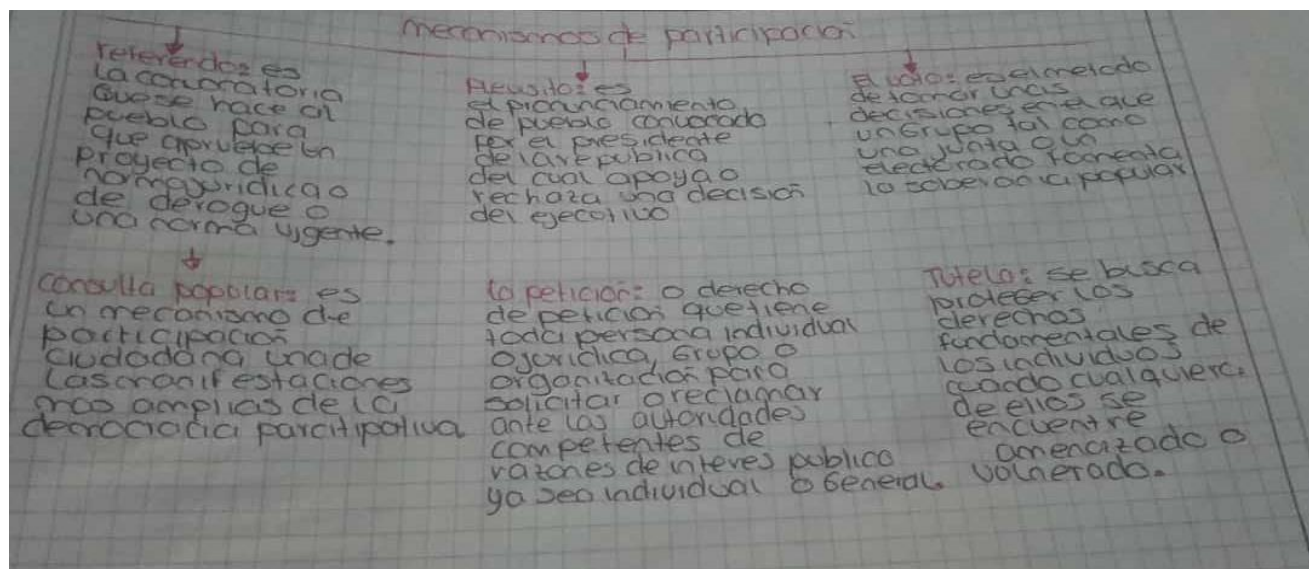 mecanismos de participación
referendo: es
la convocatoria
que se hace al
pueblo para
que apruebe un
proyecto de
norma jurídica o
de derogue o
una norma vigente.
Plebisito: es
el pronunciamiento
de pueblo convocado
por el presidente
de la republica
del cual apoya o
rechaza una decisión
del ejecotivo
El voto: es el metodo
de tomar unas
decisiones en el que
un Grupo tal como
una junta o un
electorado fomenta
la soberania popular
consulta popolar: es
un mecanismo de
participación
ciudadana una de
las manifestaciones
mas amplias de la
democracia parcitipativa
la petición: o derecho
de petición que tiene
toda persona individual
o juridica, Grupo o
organización para
solicitar o reclamar
ante las autoridades
competentes de
razones de interes publico
ya sea individual o General.
Tutela: se busca
proteger los
derechos
fundamentales de
los individuos
cuando cualquiera
de ellos se
encuentre
amenazado o
volnerado.